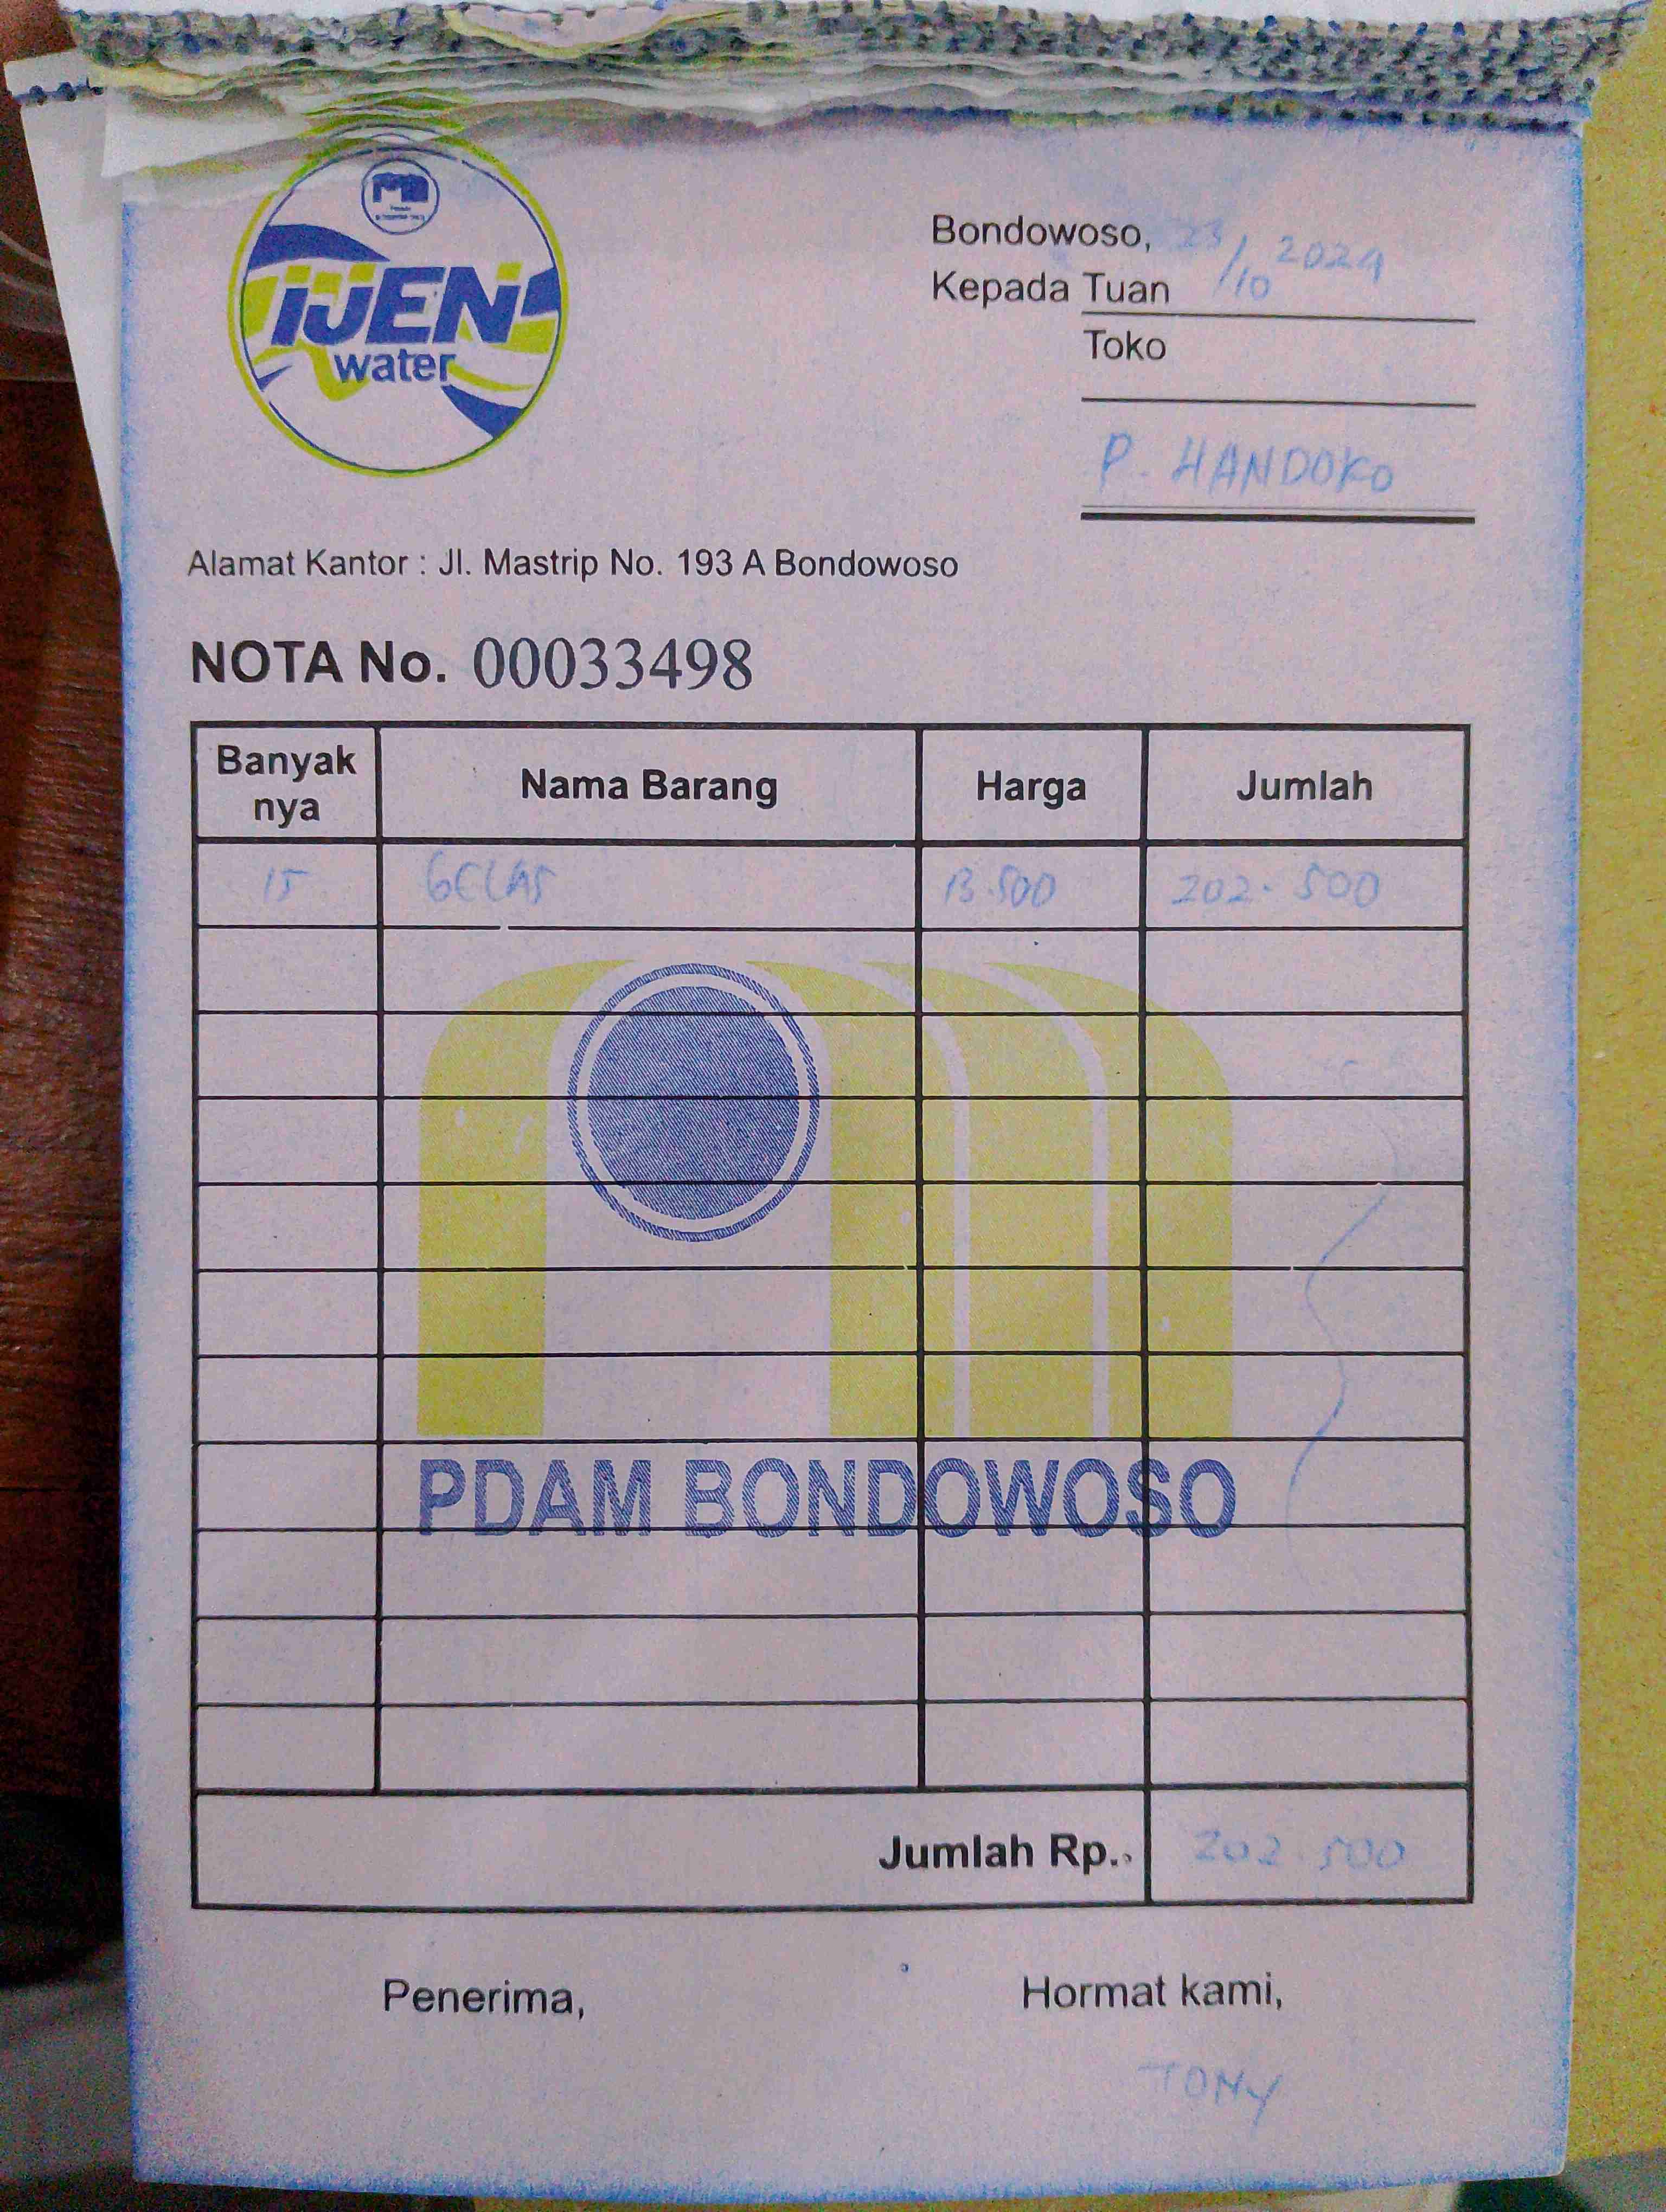 IJEN
water
Bondowoso, 23/10 2024
Kepada Tuan
Toko
P. HANDOKO
Alamat Kantor : Jl. Mastrip No. 193 A Bondowoso
NOTA No. 00033498
Banyak nya Nama Barang Harga Jumlah
15 GELAS 13.500 202.500
PDAM BONDOWOSO
Jumlah Rp. 202.500
Penerima, Hormat kami,
TONY